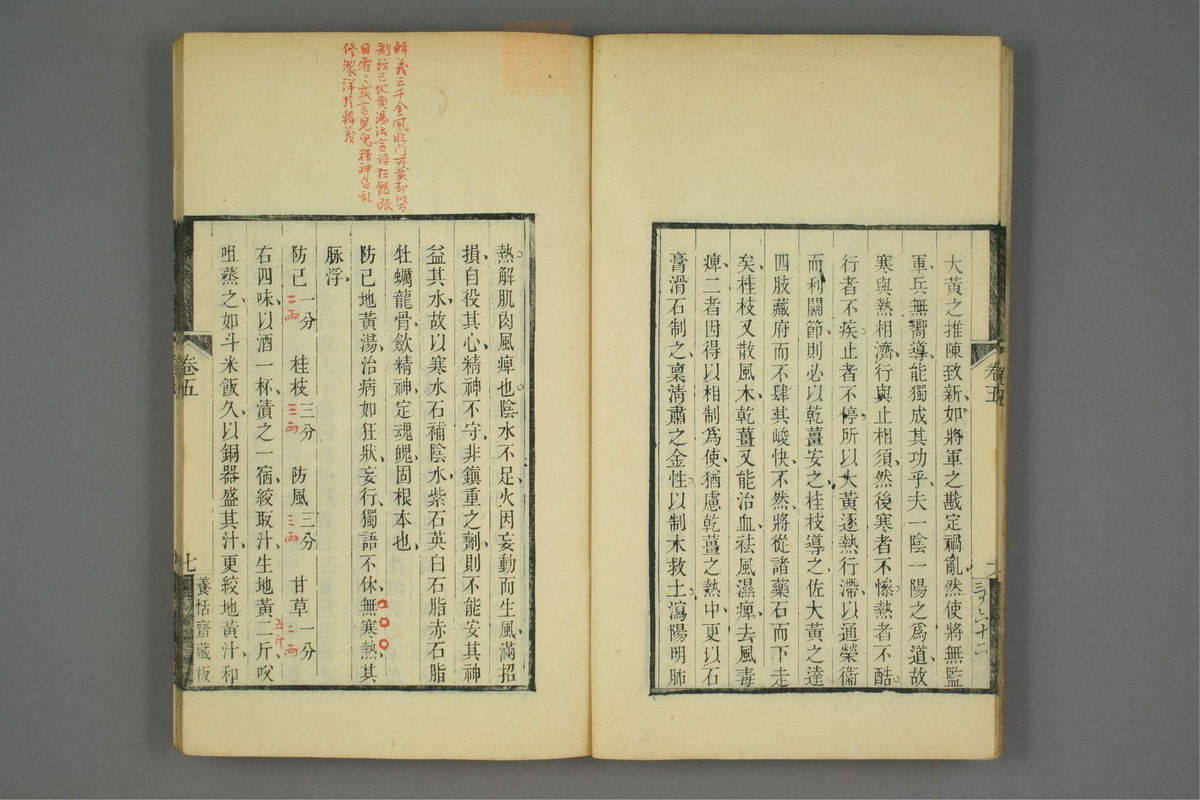 大黃之推陳致新如將軍之戡定禍亂然使將無監
軍兵無嚮導能獨成其功乎夫一陰一陽之爲道故
寒與熱相濟行與止相須然後寒者不慘熱者不酷
行者不疾止者不停所以大黃逐熱行滯以通榮衞
而利關節則必以乾薑安之桂枝導之佐大黃之達
四肢藏府而不肆其峻快不然將從諸藥石而下走
矣桂枝又散風木乾薑又能治血祛風濕痺去風毒
痺二者因得以相制爲使猶慮乾薑之熱中更以石
膏滑石制之稟淸肅之金性以制木救土瀉陽明肺
卷五
熱解肌肉風痺也陰水不足火因妄動而生風滿招
損自役其心精神不守非鎭重之劑則不能安其神
益其水故以寒水石補陰水紫石英白石脂赤石脂
牡蠣龍骨斂精神定魂魄固根本也
防己地黃湯治病如狂狀妄行獨語不休無寒熱其
脉浮
防己一分 桂枝三分 防風三分 甘草一分
二兩 三兩 三兩 二兩
右四味以酒一杯漬之一宿絞取汁生地黃二斤㕮
五斤
咀蒸之如斗米飯久以銅器盛其汁更絞地黃汁和
卷五
七
養恬齋藏板
輯義云千金風眩門所載却似古
制防己地黃湯治言語狂錯眼
目霍々或言見鬼精神昏亂
修製詳於輯義